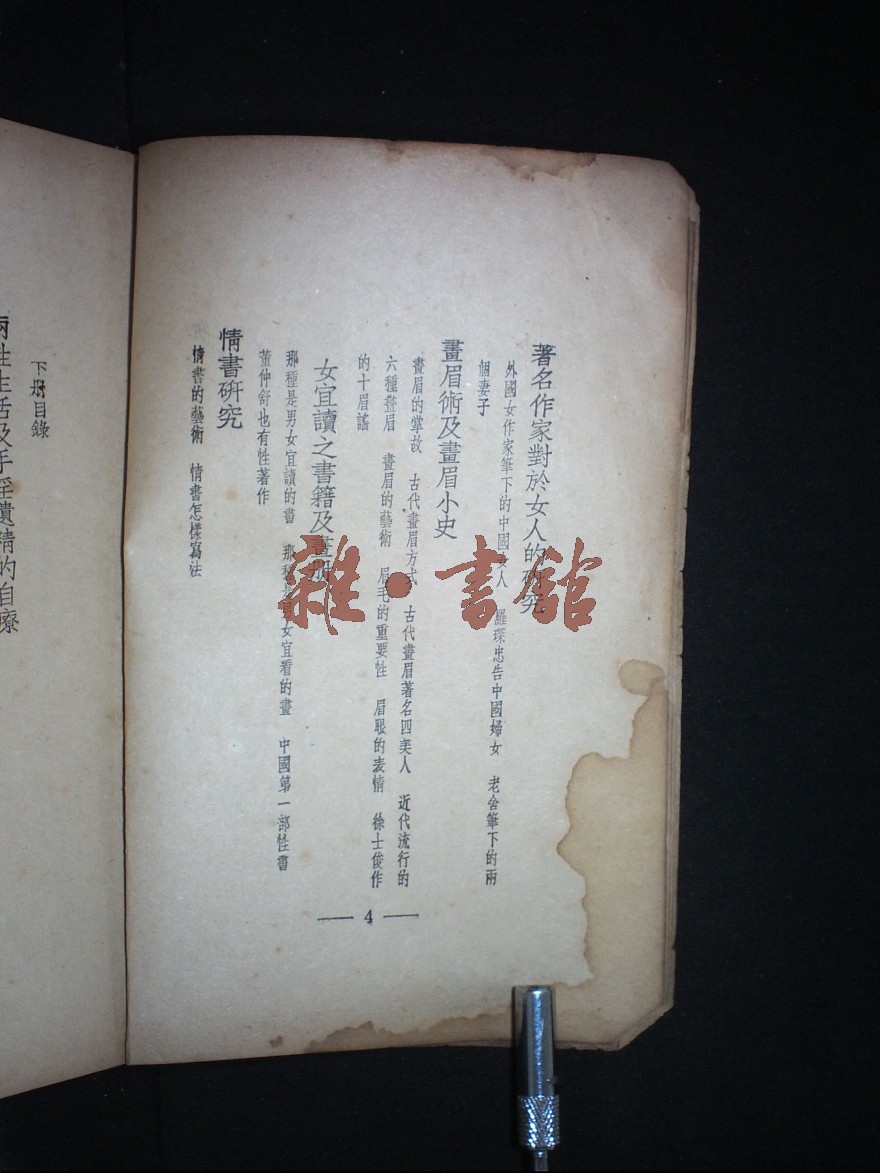 著名作家對於女人的研究
外國女作家筆下的中國女人　羅琛忠告中國婦女　老舍筆下的兩
個妻子
畫眉術及畫眉小史
畫眉的掌故　古代畫眉方式　古代畫眉著名四美人　近代流行的
六種畫眉　畫眉的藝術　眉毛的重要性　眉眼的表情　徐士俊作
的十眉謠
女宜讀之書籍及畫册
那種是男女宜讀的書　那種是男女宜看的畫　中國第一部性書
董仲舒也有性著作
情書研究
情書的藝術　情書怎樣寫法
— 4 —
下册目錄
兩性生活及手淫遺精的自療
雜·書館